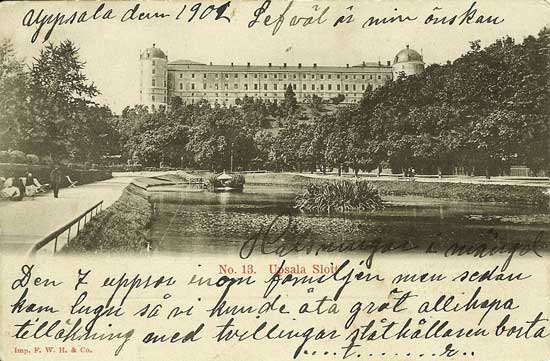 Uppsala dem 1902 Lef väl är min önskan
Hälsningar i mängd
No. 13. Upsala Slott
Den 7 uppror inom familjen men sedan
kom lugn så vi kunde äta gröt allihopa
tillökning med tvillingar ståthållaren borta
Imp. F. W. H. & Co.